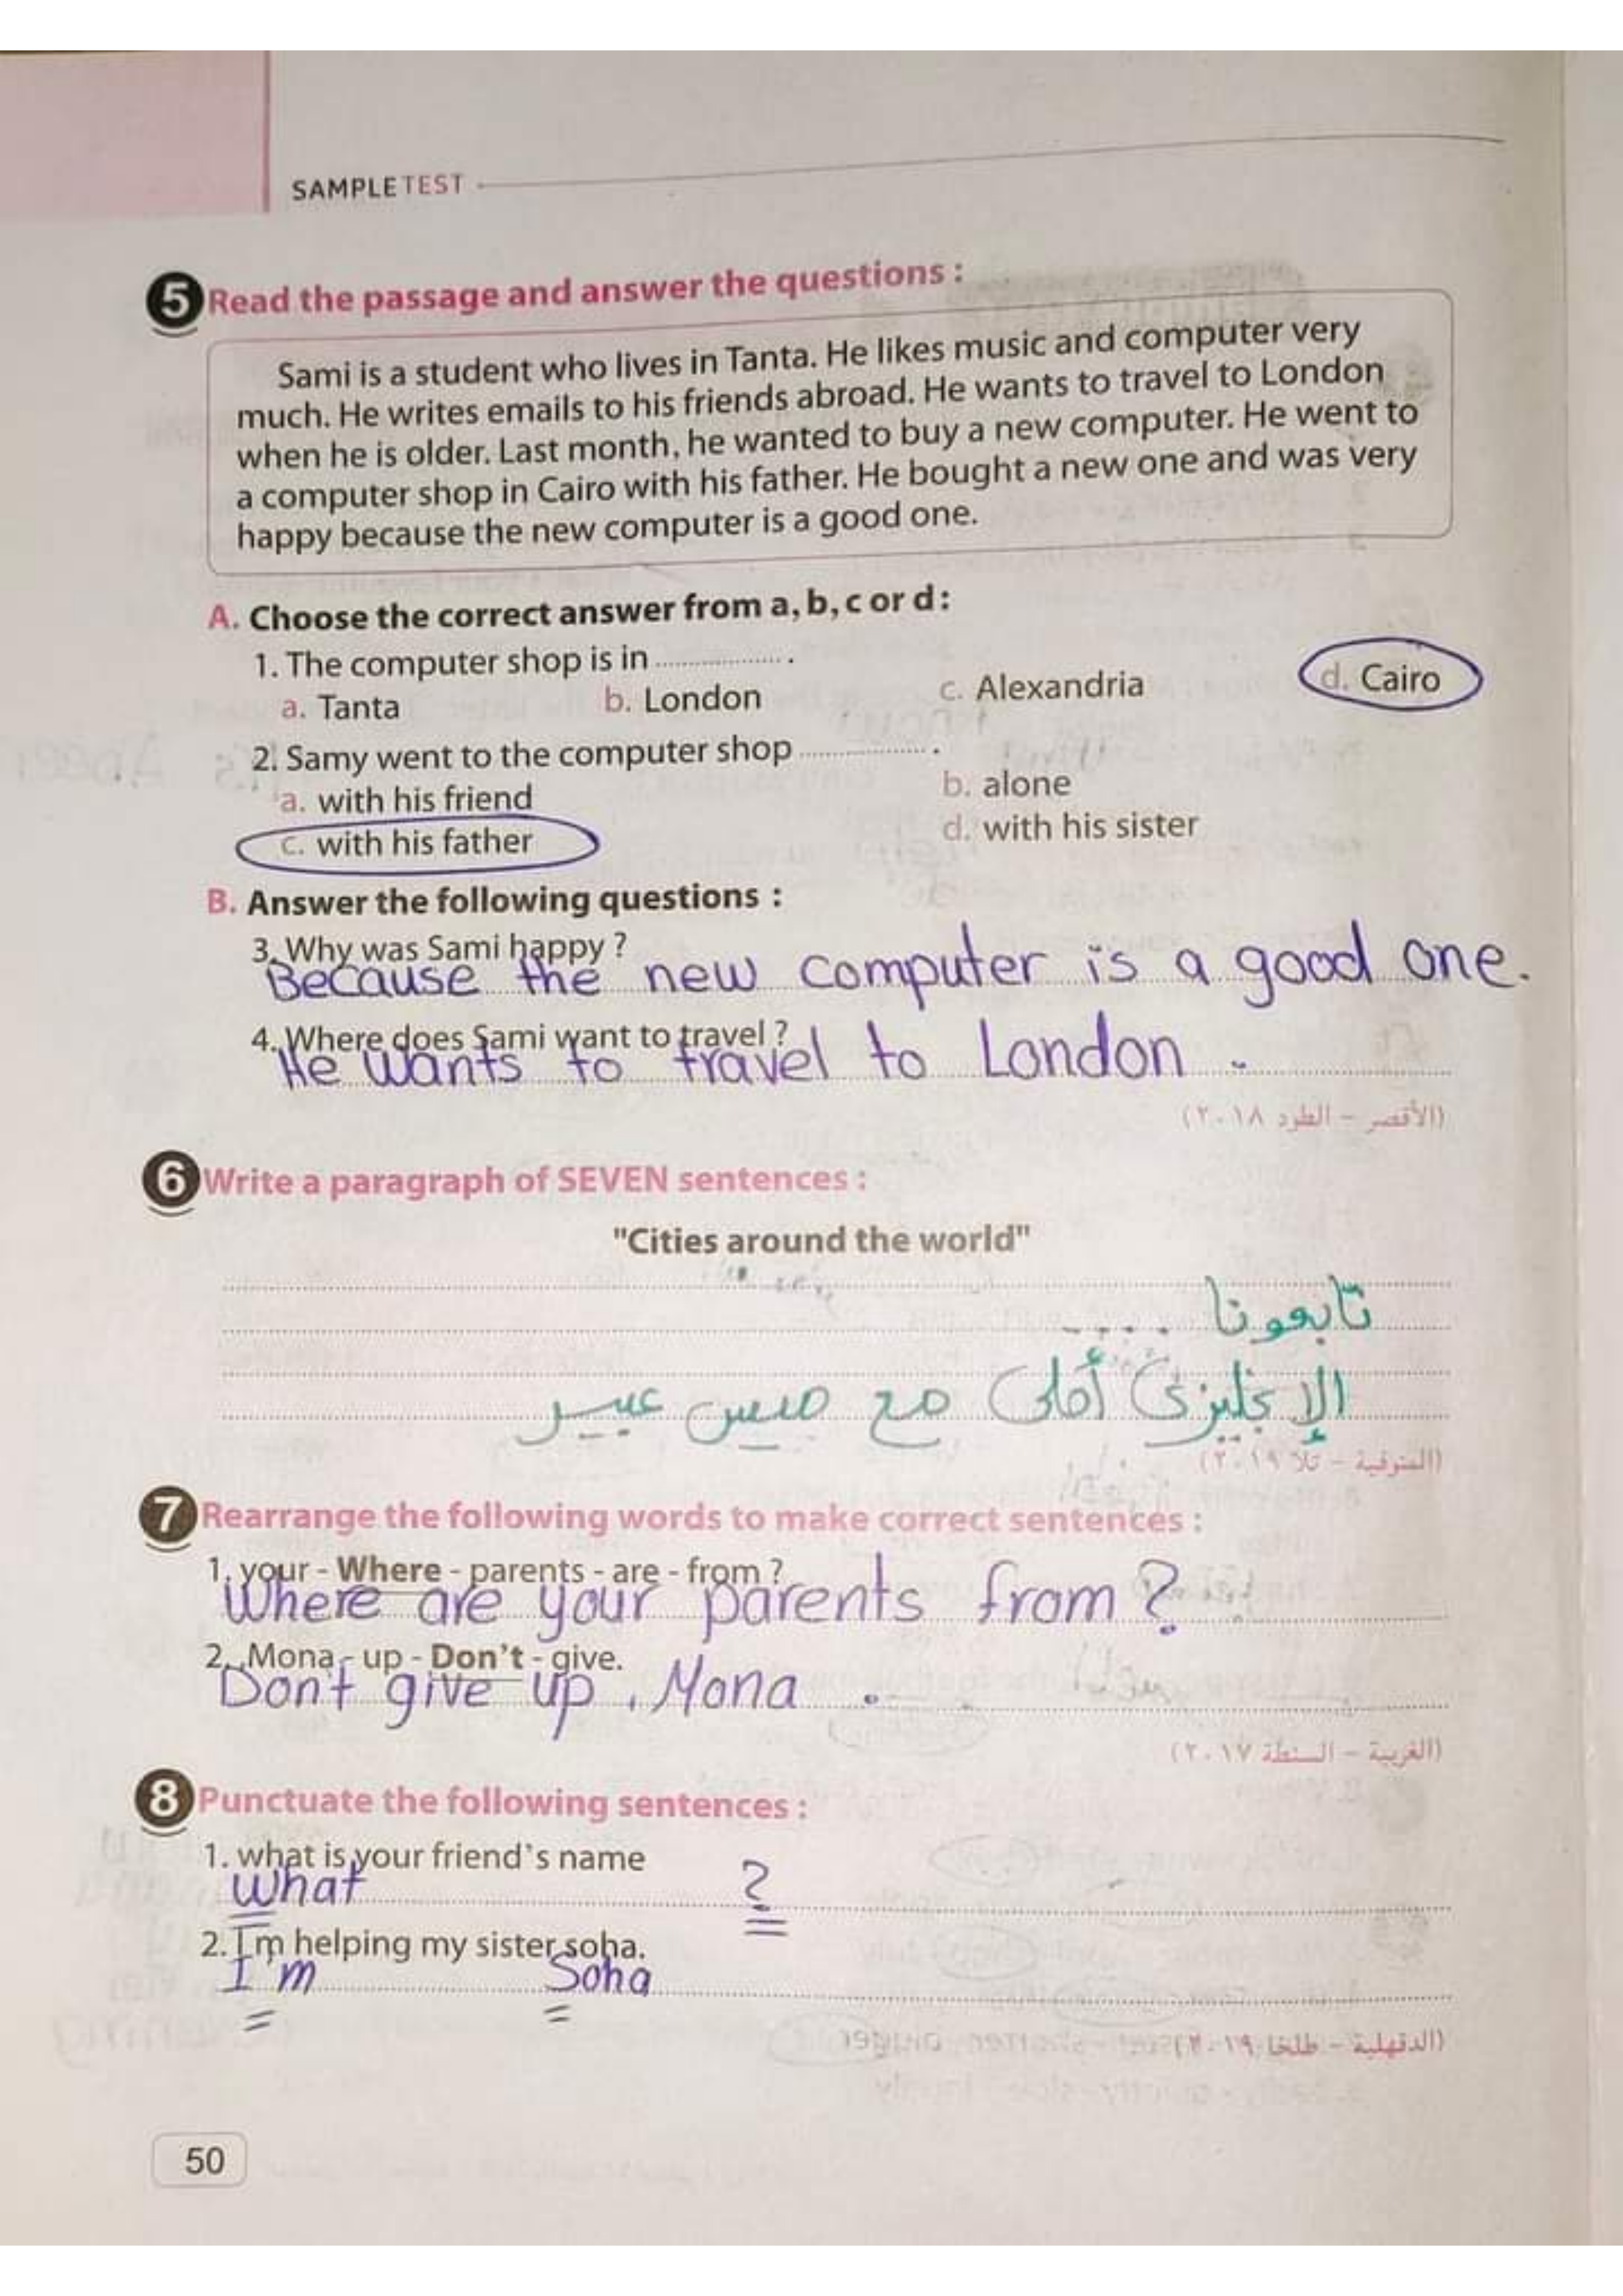 SAMPLE TEST
5 Read the passage and answer the questions :
Sami is a student who lives in Tanta. He likes music and computer very
much. He writes emails to his friends abroad. He wants to travel to London
when he is older. Last month, he wanted to buy a new computer. He went to
a computer shop in Cairo with his father. He bought a new one and was very
happy because the new computer is a good one.
A. Choose the correct answer from a, b, c or d :
1. The computer shop is in .................... .
a. Tanta b. London c. Alexandria d. Cairo
2. Samy went to the computer shop .................... .
a. with his friend b. alone
c. with his father d. with his sister
B. Answer the following questions :
3. Why was Sami happy ?
Because the new computer is a good one.
4. Where does Sami want to travel ?
He wants to travel to London .
(الأقصر - الطود ٢٠١٨)
6 Write a paragraph of SEVEN sentences :
"Cities around the world"
تابعونا ....
الإنجليزى أحلى مع ميس عبير
(المنوفية - تلا ٢٠١٩)
7 Rearrange the following words to make correct sentences :
1. your - Where - parents - are - from ?
Where are your parents from ?
2. , Mona - up - Don't - give.
Don't give up , Mona .
(الغربية - السنطة ٢٠١٧)
8 Punctuate the following sentences :
1. what is your friend's name
What ?
2. I,m helping my sister soha.
I'm Soha
(الدقهلية - طلخا ٢٠١٩)
50